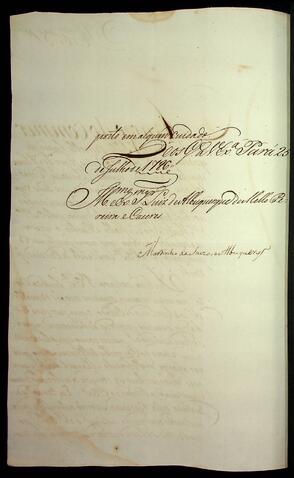 porto em algum cuidado
Deos G.de a V. Ex.a Pará 25
de Julho de 1786
Illmo. e Exmo. Snr. Luiz de Albuquerque de Mello Pe
reira e Caceres
Martinho de Souza e Albuquerque